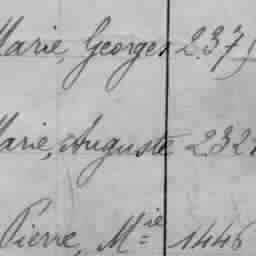 Marie, Georges 237
Marie, Auguste 232
Pierre, Mie 1446